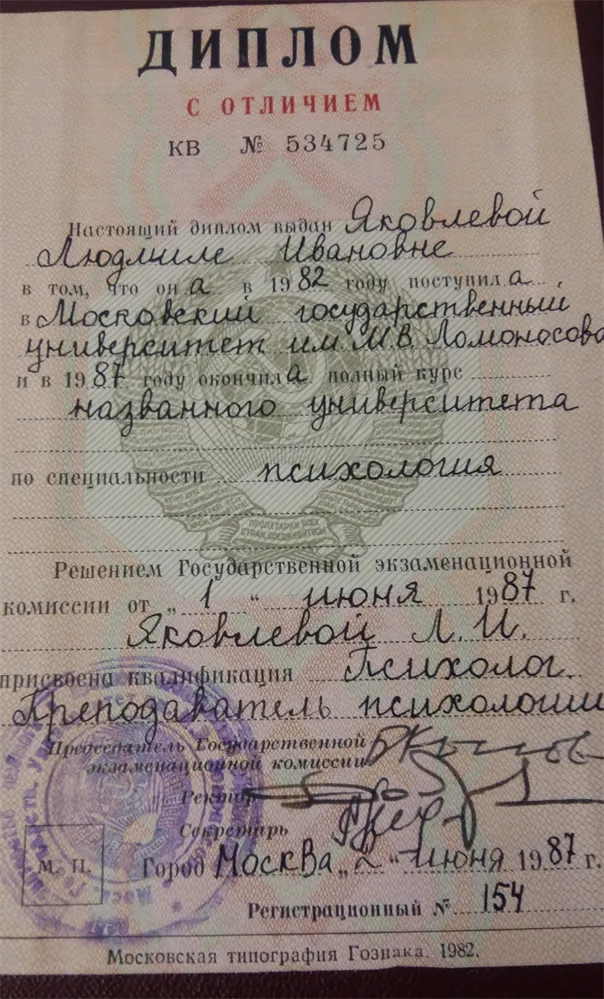 ДИПЛОМ
С ОТЛИЧИЕМ
КВ № 534725
Настоящий диплом выдан Яковлевой
Людмиле Ивановне
в том, что он а в 1982 году поступил а
в Московский государственный
университет им. М.В. Ломоносова
и в 1987 году окончил а полный курс
названного университета
по специальности психология
ПРОЛЕТАРИИ ВСЕХ
СТРАН, СОЕДИНЯЙТЕСЬ!
Решением Государственной экзаменационной
комиссии от „ 1 “ июня 1987 г.
Яковлевой Л.И.
присвоена квалификация Психолог.
Преподаватель психологии
Председатель Государственной
экзаменационной комиссии
Ректор
Секретарь
М. П. Город Москва „ 2 “ июня 1987 г.
Регистрационный № 154
Московская типография Гознака. 1982.